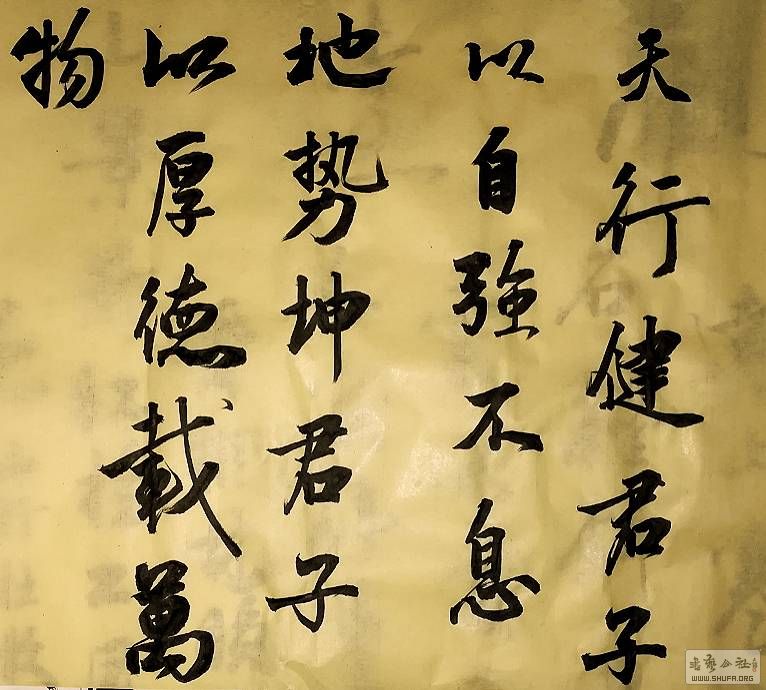 天行健君子
以自強不息
地势坤君子
以厚德載萬
物
WWW.SHUFA.ORG